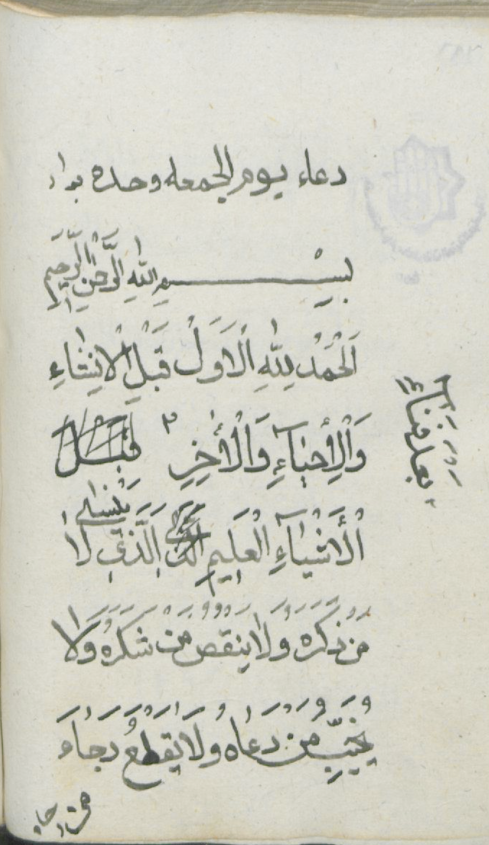 دعاء يوم الجمعه وحده
بِسْمِ اللهِ الرَّحْمٰنِ الرَّحِيمِ
اَلْحَمْدُ لِلّٰهِ الْاَوَّلِ قَبْلَ الْاِنْشَاءِ
وَالْاِحْيَآءِ وَالْأٰخِرِ ٢
بَعْدَ فَنَآءِ
الْأَشْيَآءِ الْعَلِيمِ الَّذِي لَا يَنْسٰى
مَنْ ذَكَرَهُ وَلَا يَنْقُصُ مَنْ شَكَرَهُ وَلَا
يُخَيِّبُ مَنْ دَعَاهُ وَلَا يَقْطَعُ رَجَاءَ
من رجاه